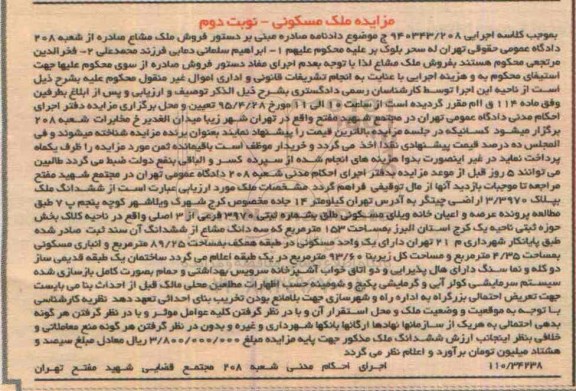 مزایده ملک مسکونی - نوبت دوم
بموجب کلاسه اجرایی ۹۴۰۳۴۳/۲۰۸ ج موضوع دادنامه صادره مبنی بر دستور فروش ملک مشاع صادره از شعبه ۲۰۸
دادگاه عمومی حقوقی تهران له سحر بلوک بر علیه محکوم علیهم ۱- ابراهیم سلمانی دمابی فرزند محمدعلی ۲- فخرالدین
مرتجعی محکوم هستند بفروش ملک مشاع لذا با توجه بعدم اجرای مفاد دستور فروش صادره از سوی محکوم علیها جهت
استیفای محکوم به و هزینه اجرایی با عنایت به انجام تشریفات قانونی و اداری اموال غیر منقول محکوم علیه بشرح ذیل
است از ناحیه این اجرا توسط کارشناس رسمی دادگستری بشرح ذیل الذکر توصیف و ارزیابی و پس از ابلاغ بطرفین
وفق ماده ۱۱۴ ق اام مقرر گردیده است از ساعت ۱۰ الی ۱۱ مورخ ۹۵/۴/۲۸ تعیین و محل برگزاری مزایده دفتر اجرای
احکام مدنی دادگاه عمومی تهران در مجتمع شهید مفتح واقع در تهران شهر زیبا میدان الغدیر خ مخابرات شعبه ۲۰۸
برگزار میشود کسانیکه در جلسه مزایده بالاترین قیمت را پیشنهاد نمایند بعنوان برنده مزایده شناخته میشوند و فی
المجلس ده درصد قیمت پیشنهادی نقدا اخذ می گردد و خریدار موظف است باقیمانده ثمن مورد مزایده را ظرف یکماه
پرداخت نماید در غیر اینصورت بدوا هزینه های انجام شده از سپرده کسر و الباقی بنفع دولت ضبط می گردد طالبین
می توانند ۵ روز قبل از موعد مزایده بدفتر اجرای احکام مدنی شعبه ۲۰۸ دادگاه عمومی تهران در مجتمع شهید مفتح
مراجعه تا موجبات بازدید آنها از مال توقیفی فراهم گردد. مشخصات ملک مورد ارزیابی عبارت است از ششدانگ ملک
بپلاک ۳/۳۹۷۰ اراضی چیتگر به آدرس تهران کیلومتر ۱۴ جاده مخصوص کرج شهرک ویلاشهر کوچه پنجم پ ۷ طبق
مطالعه پرونده عرصه و اعیان خانه ویلای مسکونی طلق بشماره ثبتی ۳۹۷۰ فرعی از ۳ اصلی واقع در ناحیه کلاک بخش
حوزه ثبتی ناحیه یک کرج استان البرز بمساحت ۱۵۳ مترمربع که سه دانگ مشاع از ششدانگ آن سند ثبت صادر شده
طبق پایانکار شهرداری م ۲۱ تهران دارای یک واحد مسکونی در طبقه همکف بمساحت ۸۹/۲۵ مترمربع و انباری مسکونی
بمساحت ۴/۳۵ مترمربع و مساحت کل زیربنا ۹۳/۶۰ مترمربع در یک طبقه اعلام می گردد ساختمان یک طبقه قدیمی ساز
دو کله و نما سنگ دارای هال پذیرایی و دو اتاق خواب آشپزخانه سرویس بهداشتی و حمام بصورت کامل بازسازی شده
سیستم سرمایشی کولر آبی و گرمایشی پکیج و شومینه حسب اظهارات مطلعین محلی مالک قبل از احداث بنا می بایست
جهت تعریض احتمالی بزرگراه به اداره راه و شهرسازی جهت بلامانع بودن تخریب بنای احداثی تعهد دهد نظریه کارشناسی
با توجه به موقعیت و وضعیت ملک و محل استقرار آن و با در نظر گرفتن کلیه عوامل موثر و با در نظر گرفتن هر گونه
بدهی احتمالی به هریک از سازمانها نهادها ارگانها بانکها شهرداری و غیره و بدون در نظر گرفتن هر گونه منع معاملاتی و
خلافی بنظر اینجانب ارزش ششدانگ ملک مذکور جهت پایه مزایده مبلغ ۳/۸۰۰/۰۰۰/۰۰۰ ریال معادل مبلغ سیصد و
هشتاد میلیون تومان برآورد و اعلام نظر می گردد
۱۱۰/۳۴۲۳۸ اجرای احکام مدنی شعبه ۲۰۸ مجتمع قضایی شهید مفتح تهران